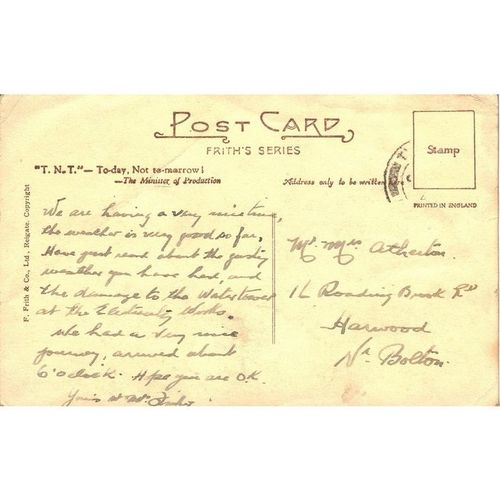 POST CARD
FRITH'S SERIES
"T.N.T."— To-day, Not to-morrow!
—The Minister of Production
Address only to be written here
Stamp
PRINTED IN ENGLAND
F. Frith & Co., Ltd., Reigate. Copyright
We are having a very nice time,
the weather is very good so far,
Have just read about the gusty
weather you have had, and
the damage to the Watertower
at the Electricity Works.
We had a very nice
journey, arrived about
6 o'clock. Hope you are O.K.
Yours
Mr. Mrs Atherton
1 Roading Brook Rd
Harwood
Nr Bolton.